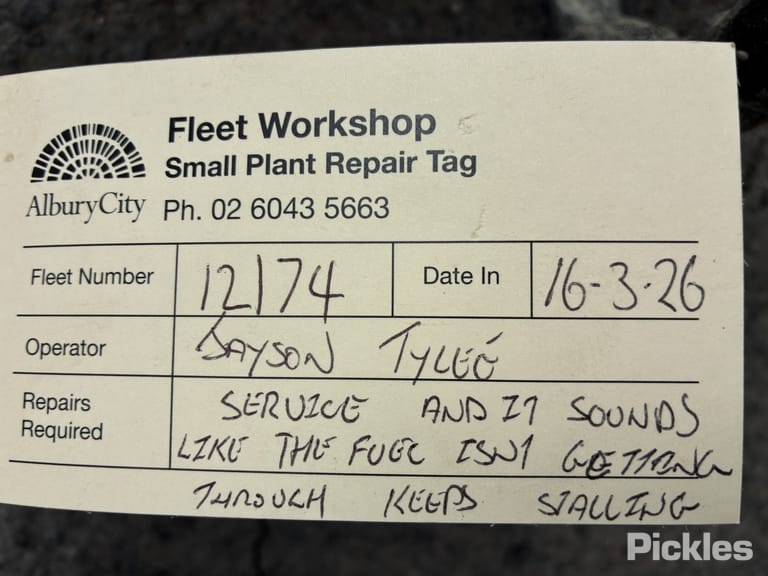 Fleet Workshop
Small Plant Repair Tag
AlburyCity Ph. 02 6043 5663
Fleet Number 12174 Date In 16-3-26
Operator JAYSON TYLEE
Repairs Required SERVICE AND IT SOUNDS
LIKE THE FUEL ISNT GETTING
THROUGH KEEPS STALLING
Pickles